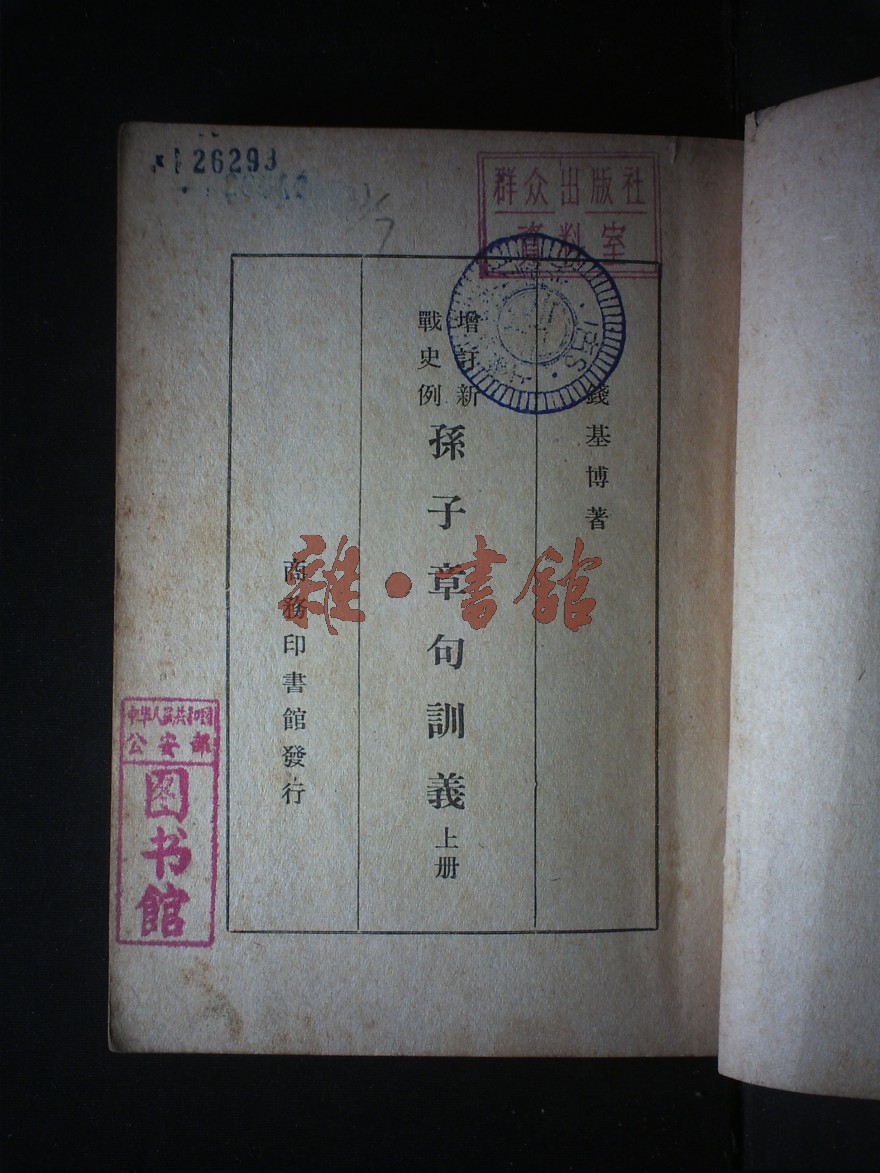 126293
群众出版社
資料室
錢基博著
增訂新
戰史例
孫子章句訓義上册
商務印書館發行
雜·書館
中华人民共和国
公安部
图书馆